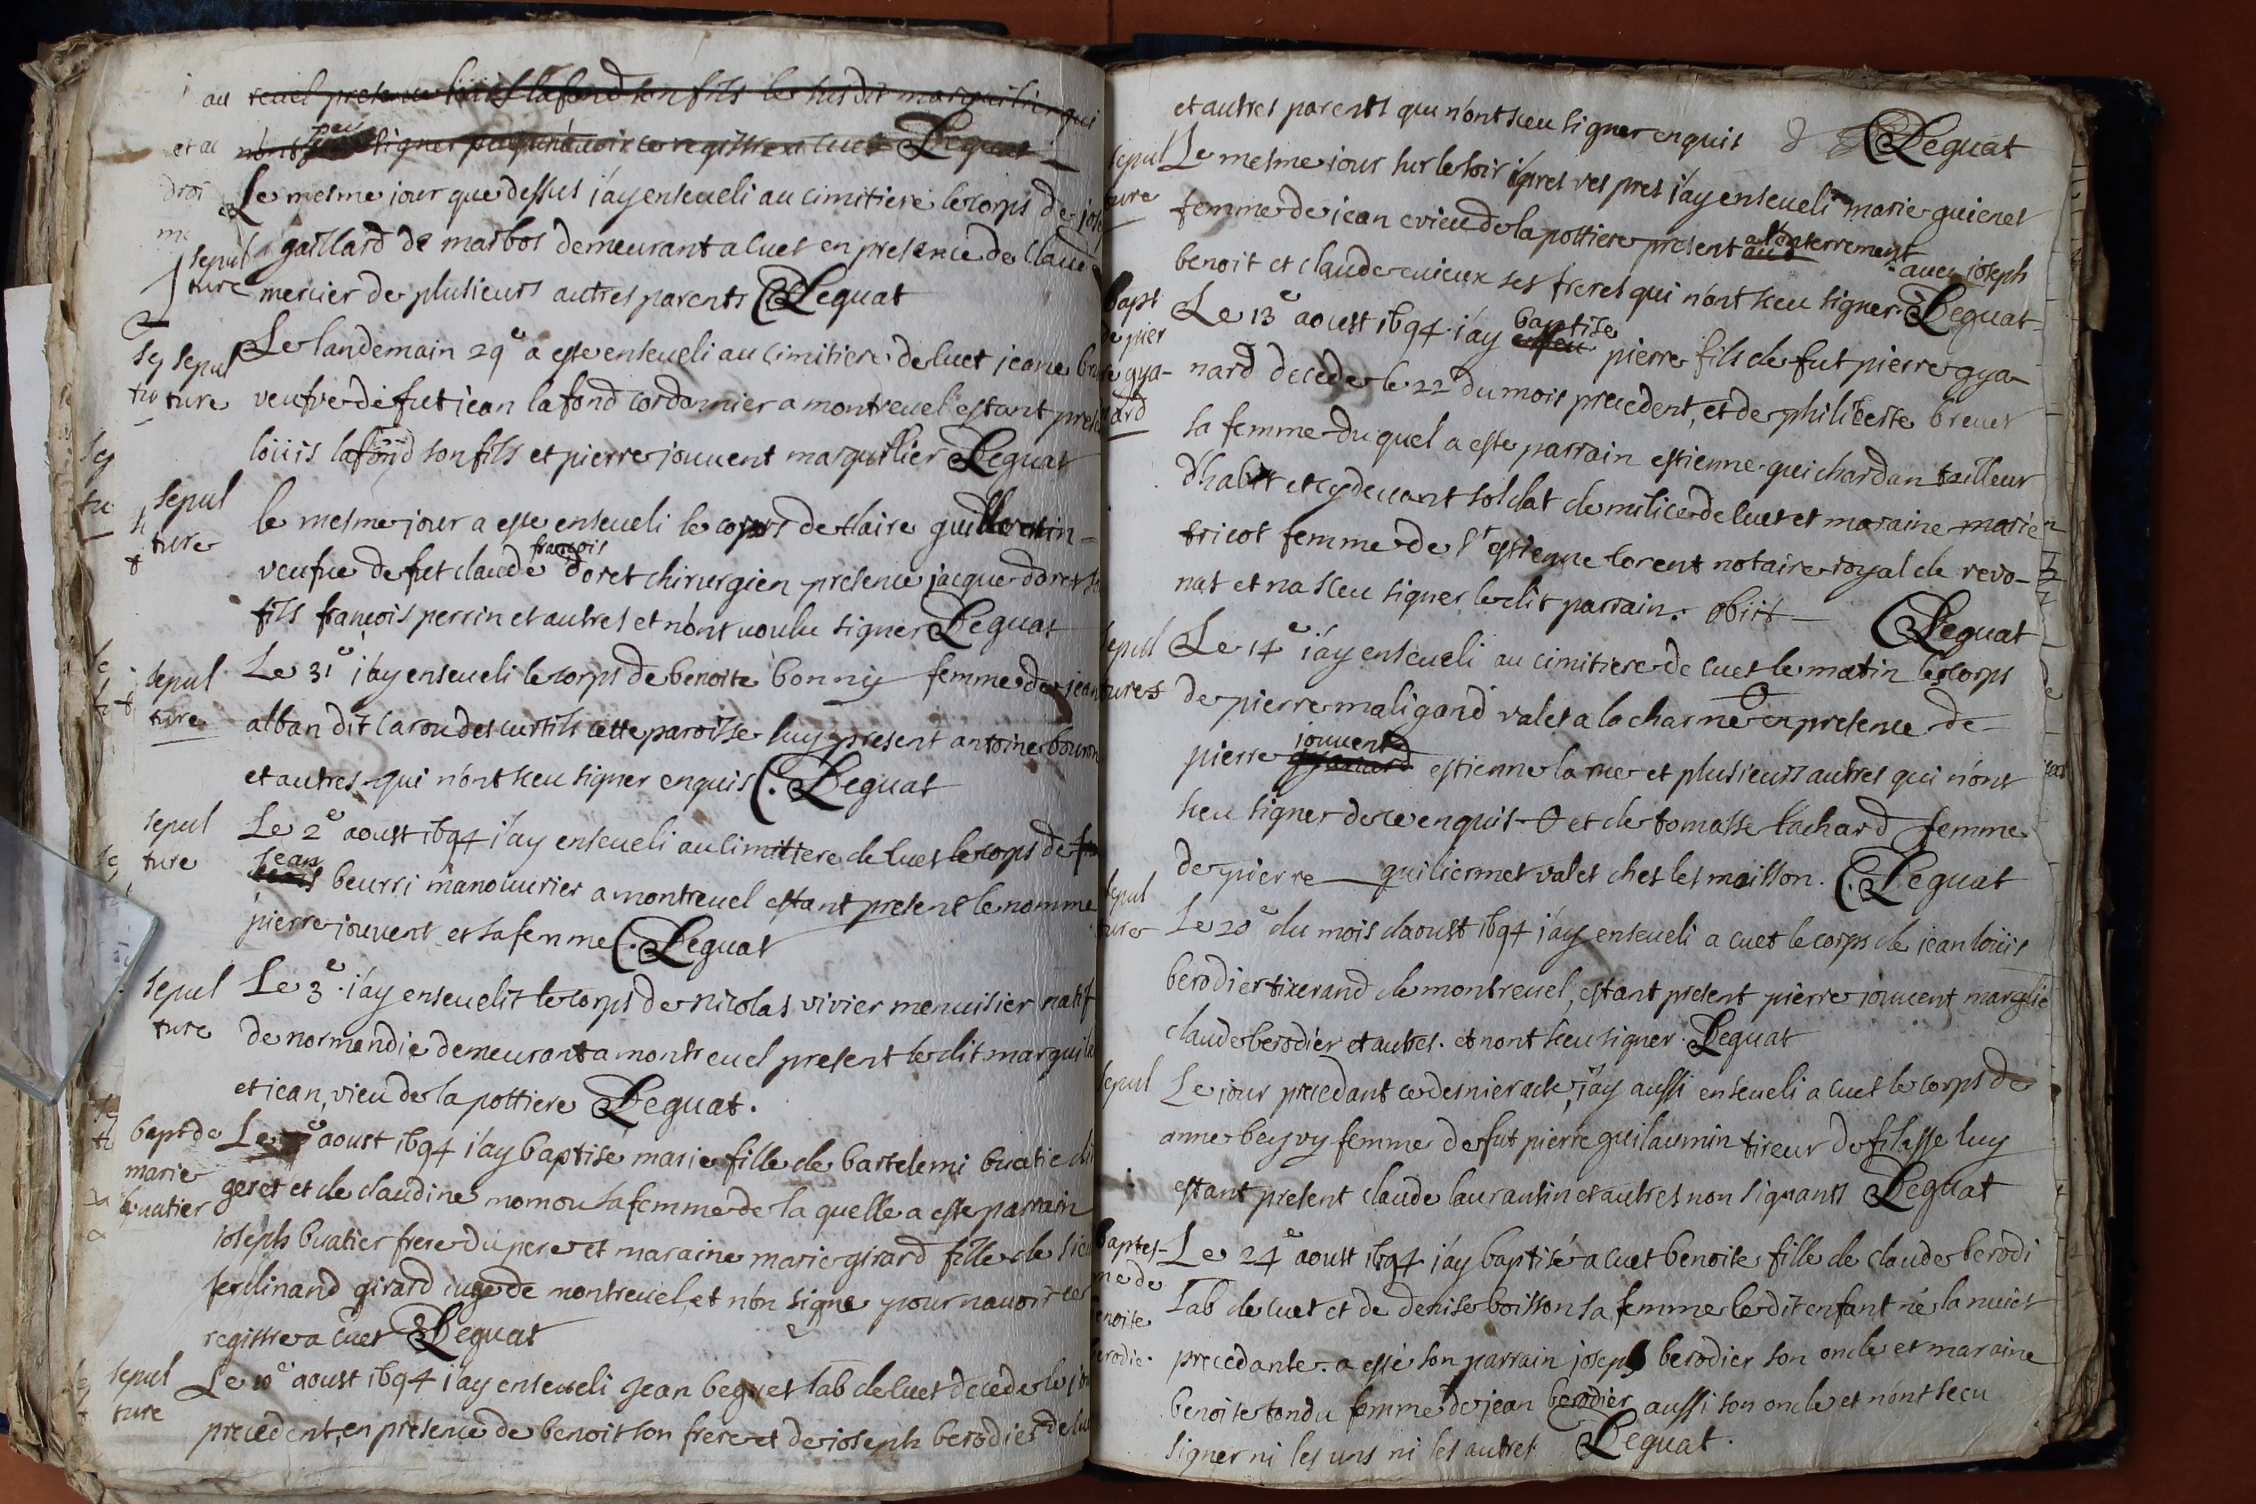 reuel presence louis lafond son fils le susdit marguilier qui
n'ont peu signer Leguat
Le mesme iour que dessus i'ay enseueli au cimitiere le corps de jos
sepul
ture
gaillard de marbos demeurant a cuet en presence de claude
mercier de plusieurs autres parents Leguat
sepul
ture
Le landemain 29e a esté enseueli au cimitiere de cuet jeane
veufve de fut jean la fond cordonnier a montreuel estant prese
louis lafond son fils et pierre jouuent marguillier Leguat
sepul
ture
le mesme jour a esté enseueli le corps de claire guillermin
veufue de fut claude françois doret chirurgien presence jacque doret
fils françois perrin et autres et n'ont uoulu signer Leguat
sepul
ture
Le 31e i'ay enseueli le corps de benoite bonny femme de jean
alban dit caron des curtils cette paroisse luy present antoine
et autres qui n'ont sceu signer enquis Leguat
sepul
ture
Le 2e aoust 1694 i'ay enseueli au cimittere de cuet le corps de
jean beurri manouurier a montreuel estant present le nomme
pierre jouuent et sa femme Leguat
sepul
ture
Le 3e i'ay enseuelit le corps de nicolas vivier menuisier natif
de normendie demeurant a montreuel present le dit marguil
et jean vieu de la pottiere Leguat.
bapt de
marie
buatier
Le aoust 1694 i'ay baptisé marie fille de bartelemi buatie dit
geret et de claudine momou sa femme de la quelle a esté parrain
joseph buatier frere du pere et maraine marie girard fille de
ferdinand girard iuge de montreuel, et n'on signe pour n'auoir
registre a cuet Leguat
sepul
ture
Le 10e aoust 1694 i'ay enseueli jean beguet lab de cuet decede le jou
precedent, en presence de benoit son frere et de joseph berodier de
et autres parents qui n'ont sceu signer enquis Leguat
sepul
ture
Le mesme iour sur le soir apres vespres i'ay enseueli marie guienet
femme de jean cuieu de la pottiere present a l'enterrement auec joseph
benoit et claude cuieux ses freres qui n'ont sceu signer. Leguat
bapt
de pier
re gya-
nard
Le 13e aoust 1694 i'ay baptise pierre fils de fut pierre gya-
nard decede le 22e du mois precedent, et de philiberte breuet
sa femme duquel a esté parrain estienne guichardan tailleur
d'habit et cy deuant soldat de milice de cuet et maraine marie
tricot femme de sr estienne lorent notaire royal de revo-
nat et na sceu signer le dit parrain. obiit Leguat
sepul
tures
Le 14e i'ay enseueli au cimitiere de cuet le matin le corps
de pierre maligand valet a la charme en presence de
pierre jouuent estienne la rue et plusieurs autres qui n'ont
sceu signer de ce enquis et de tomasse tachard femme
de pierre guiliermet valet ches les maisson. Leguat
sepul
ture
Le 20e du mois daoust 1694 i'ay enseueli a cuet le corps de jean louis
berodier tixerand de montreuel, estant present pierre jouuent marglie
claude berodier et autres. et nont sceu signer. Leguat
sepul
Le jour precedant ce dernier acte, j'ay aussi enseueli a cuet le corps de
anne beyvy femme de fut pierre guilaumin tireur de filasse luy
estant present claude laurantin et autres non signants Leguat
baptes-
me de
benoite
berodie.
Le 24e aoust 1694 i'ay baptisé a cuet benoite fille de claude berodi
lab de cuet et de denise boisson sa femme le dit enfant né la nuict
precedante. a esté son parrain joseph berodier son oncle et maraine
benoite tondu femme de jean berodier aussi son oncle et n'ont sceu
signer ni les uns ni les autres Leguat.